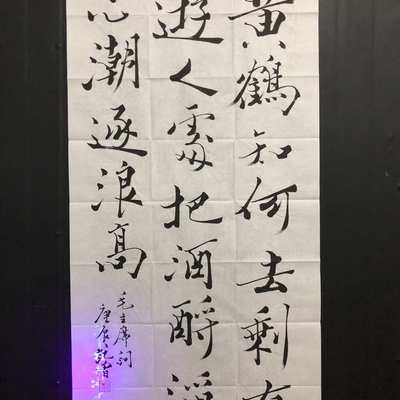 黄鶴知何去剩有
遊人處把酒酹滔
心潮逐浪高
毛主席詞
庚辰